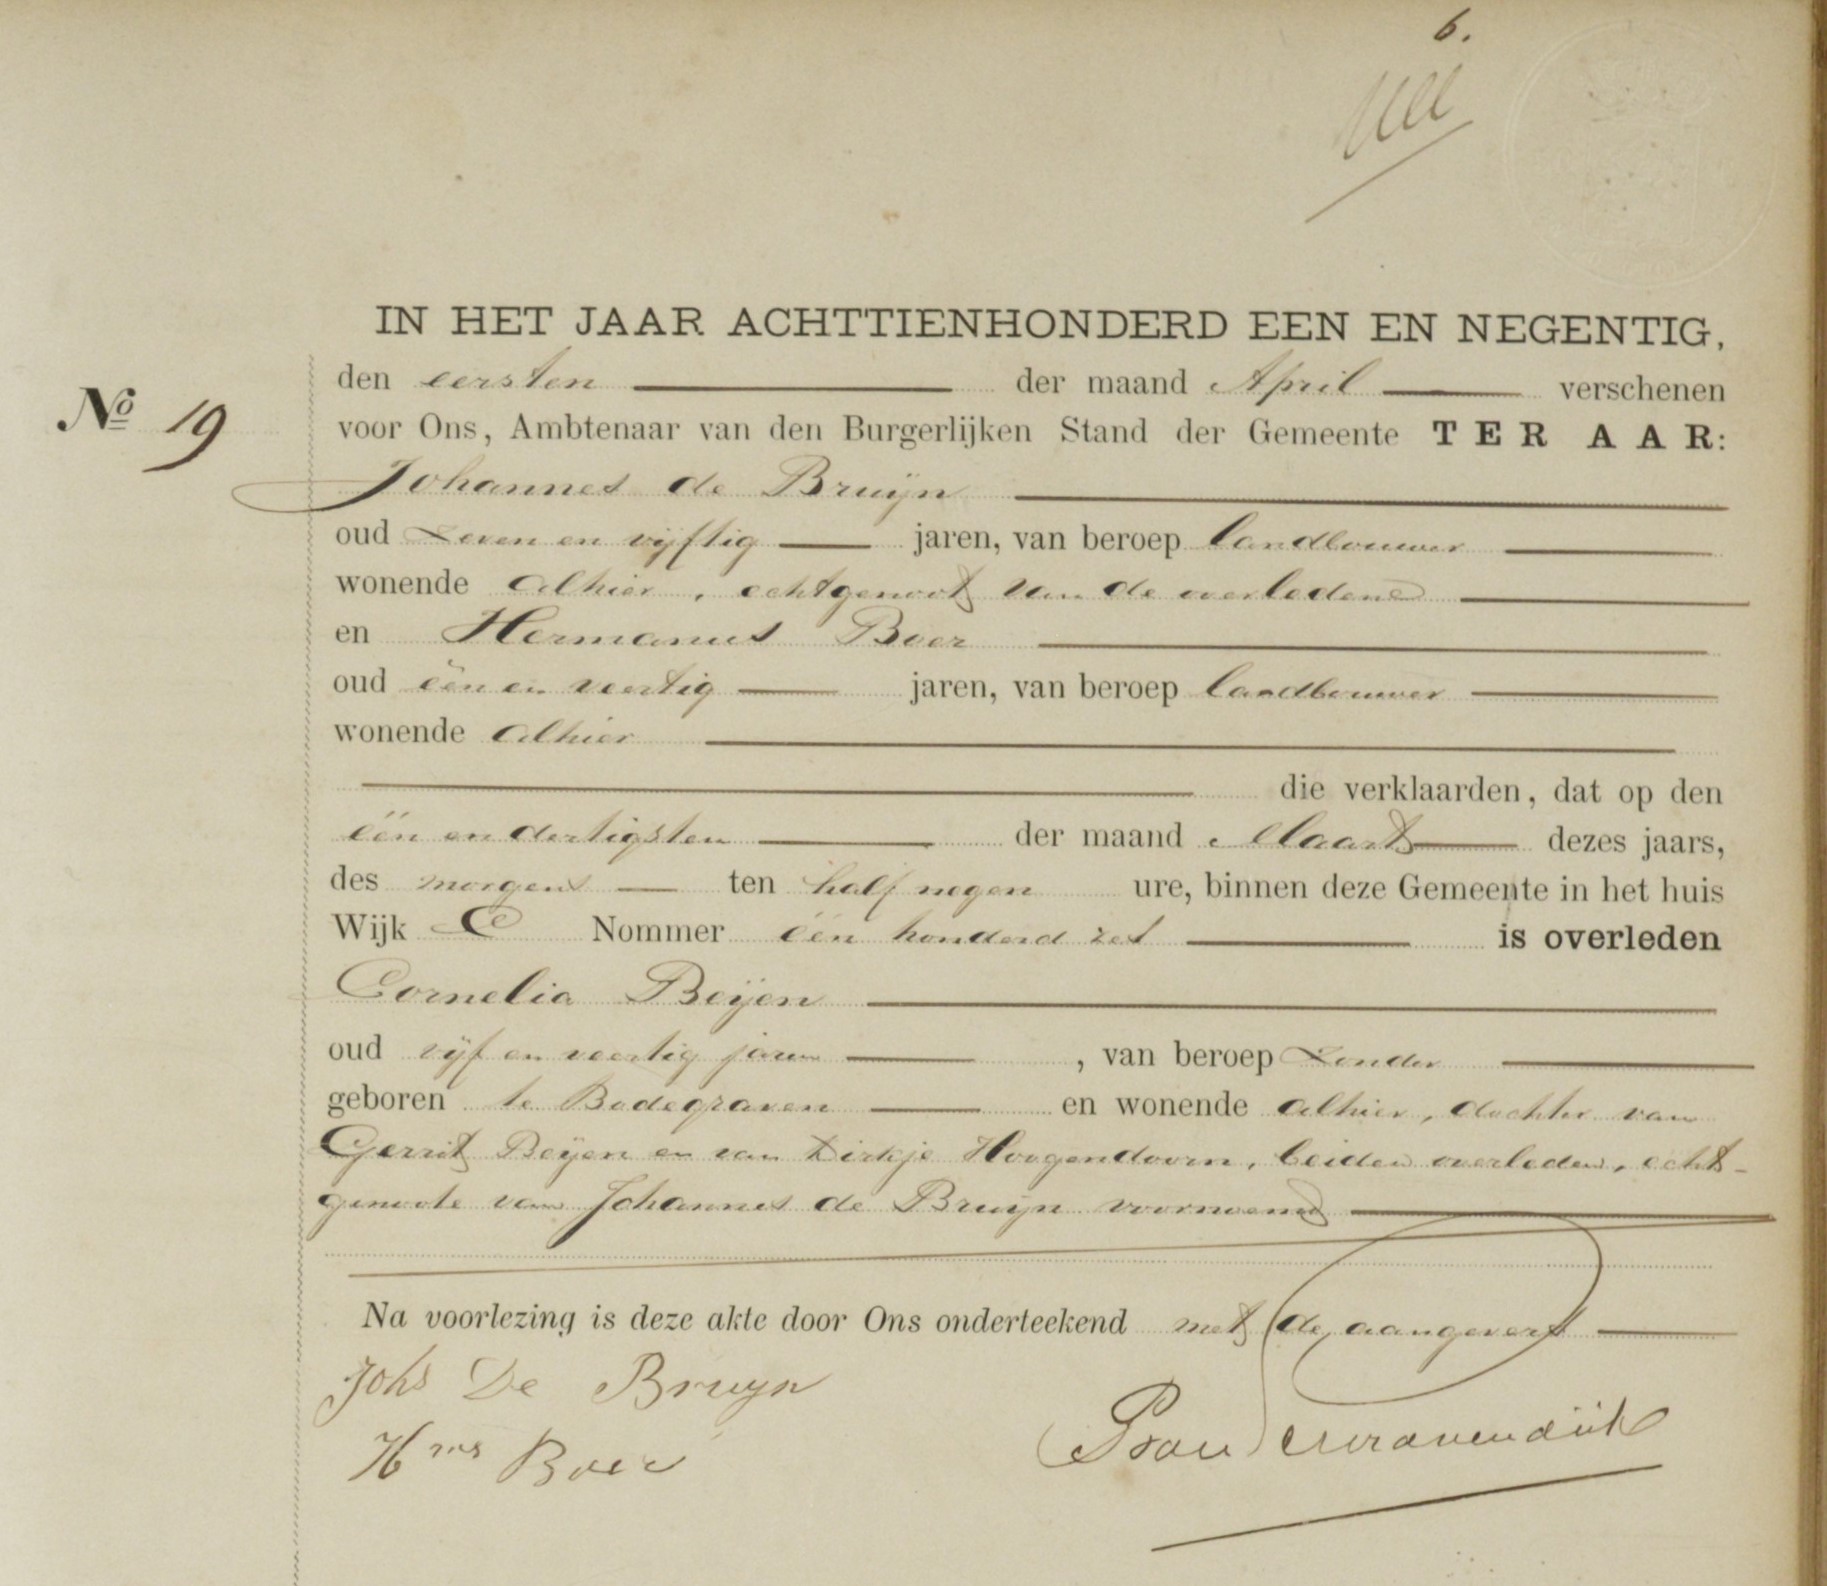 6.
No 19
IN HET JAAR ACHTTIENHONDERD EEN EN NEGENTIG,
den eersten der maand April verschenen
voor Ons, Ambtenaar van den Burgerlijken Stand der Gemeente TER AAR:
Johannes de Bruijn
oud zeven en vijftig jaren, van beroep landbouwer
wonende alhier, echtgenoot van de overledene
en Hermanus Boer
oud één en veertig jaren, van beroep landbouwer
wonende alhier
die verklaarden, dat op den
één en dertigsten der maand Maart dezes jaars,
des morgens ten half negen ure, binnen deze Gemeente in het huis
Wijk C Nommer één honderd zes is overleden
Cornelia Beijen
oud vijf en veertig jaren, van beroep zonder
geboren te Bodegraven en wonende alhier, dochter van
Gerrit Beijen en van Dirkje Hoogendoorn, beiden overleden, echt-
genoote van Johannes de Bruijn voornoemd
Na voorlezing is deze akte door Ons onderteekend met de aangevers
Johs De Bruyn
Hms Boer